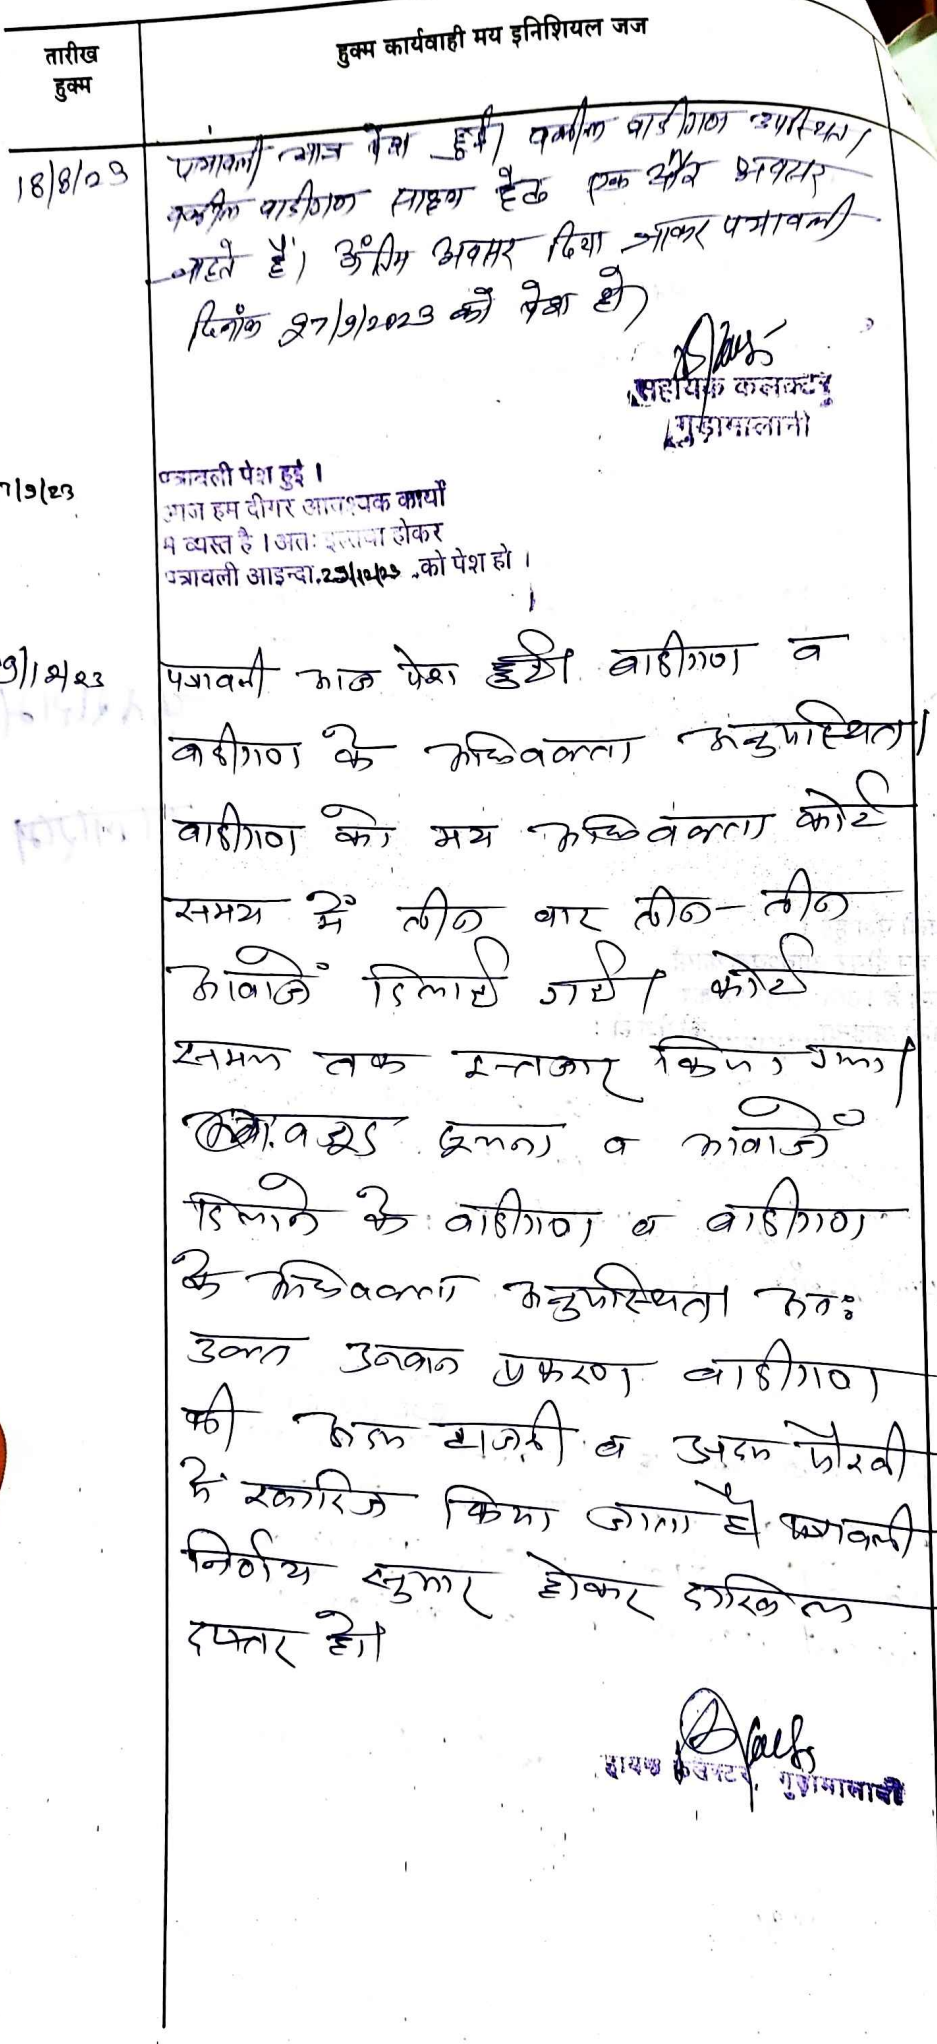 तारीख
हुक्म
हुक्म कार्यवाही मय इनिशियल जज
18/8/23
पत्रावली आज पेश हुई। वकील वादीगण उपस्थित।
वकील वादीगण साक्ष्य हेतु एक और अवसर
चाहते है। अंतिम अवसर दिया जाकर पत्रावली
दिनांक 27/9/2023 को पेश हो
सहायक कलक्टर
गुड़ामालानी
7/9/23
पत्रावली पेश हुई ।
आज हम दीगर आवश्यक कार्यों
मे व्यस्त है । अतः इल्तवा होकर
पत्रावली आइन्दा 29/12/23 को पेश हो ।
9/12/23
पत्रावली आज पेश हुई। वादीगण व
वादीगण के अधिवक्ता अनुपस्थित।
वादीगण को मय अधिवक्ता कोर्ट
समय में तीन बार तीन-तीन
आवाजें दिलाई गई। कोर्ट
समय तक इन्तजार किया गया।
बावजूद सूचना व आवाजें
दिलाने के वादीगण व वादीगण
के अधिवक्ता अनुपस्थित। अतः
उक्त उनवान प्रकरण वादीगण
की अदम हाजरी व अदम पैरवी
में खारिज किया जाता है। पत्रावली
निर्णय सुमार होकर दाखिल
दफ्तर हो।
हायक कलक्टर, गुड़ामालानी